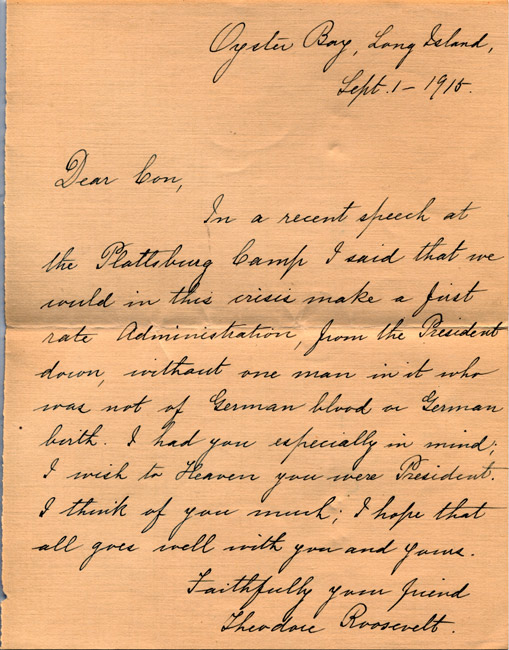 Oyster Bay, Long Island,
Sept. 1 - 1915.
Dear Con,
In a recent speech at
the Plattsburg Camp I said that we
could in this crisis make a first
rate Administration, from the President
down, without one man in it who
was not of German blood or German
birth. I had you especially in mind;
I wish to Heaven you were President.
I think of you much; I hope that
all goes well with you and yours.
Faithfully your friend
Theodore Roosevelt.